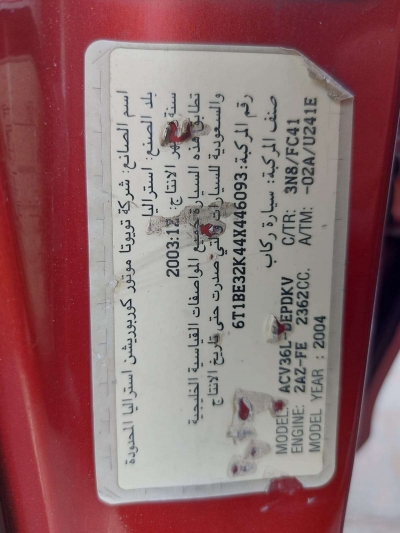 اسم الصانع: شركة تويوتا موتور كوربوريشن استراليا المحدودة
بلد الصنع: استراليا
سنة الانتاج: 2003:12
تطابق هذه السيارة جميع المواصفات القياسية الخليجية
والسعودية للسيارات التي صدرت حتى تاريخ الانتاج
رقم المركبة: 6T1BE32K44X446093
صنف المركبة: سيارة ركاب
MODEL: ACV36L-DEPDKV C/TR: 3N8/FC41
ENGINE: 2AZ-FE 2362CC. A/TM: -02A/U241E
MODEL YEAR : 2004